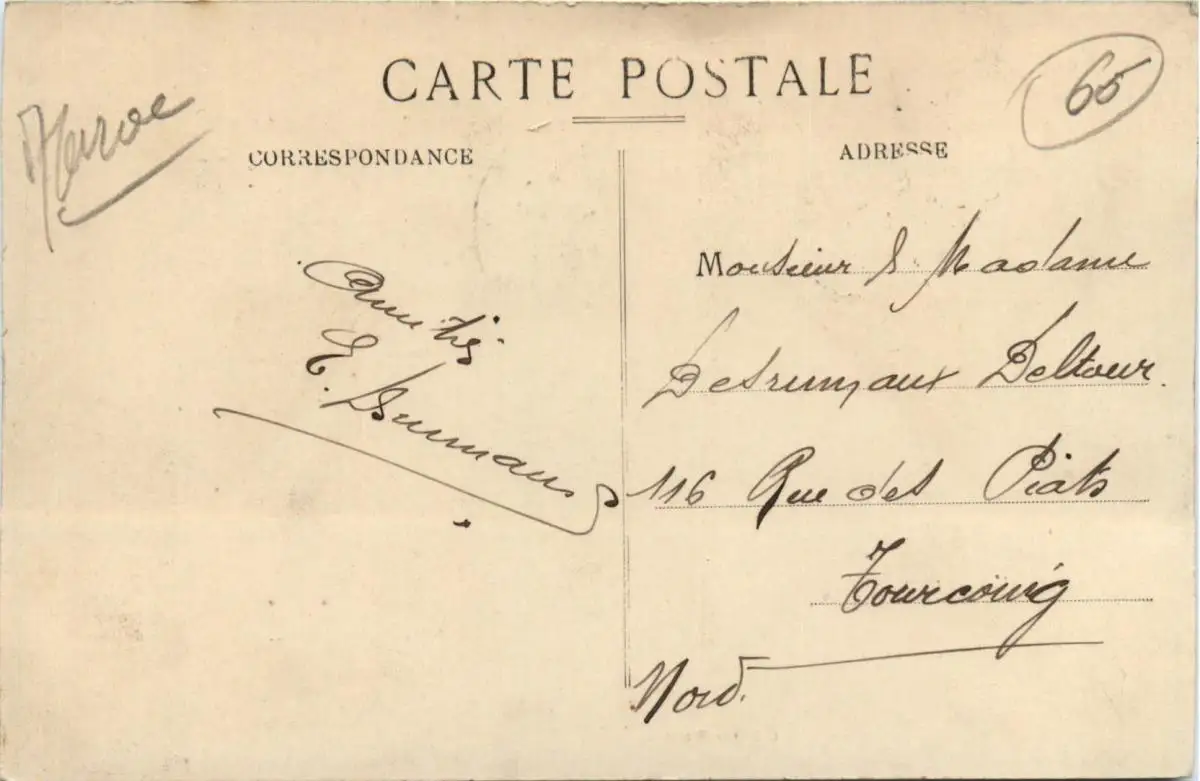 CARTE POSTALE
65
Maroc
CORRESPONDANCE
ADRESSE
Amitiés
E.
Monsieur & Madame
Desrumaux Deltour.
116 Rue des Piats
Tourcoing
Nord.